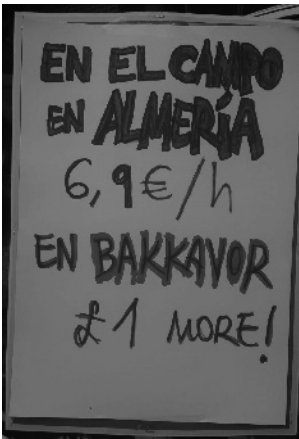 EN EL CAMPO
EN ALMERÍA
6,9€/h
EN BAKKAVOR
£1 MORE!